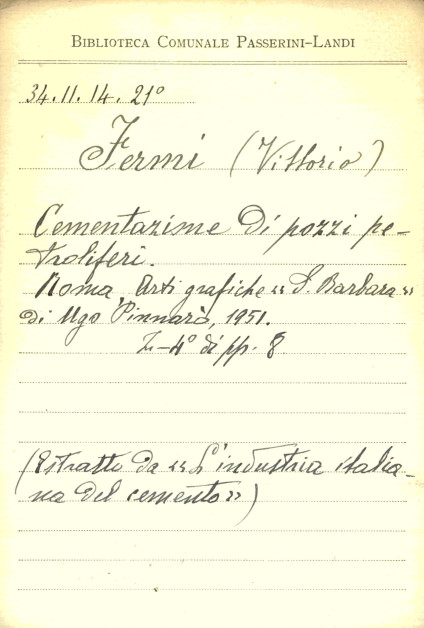 BIBLIOTECA COMUNALE PASSERINI-LANDI
34.11.14.21°
Fermi (Vittorio)
Cementazione di pozzi pe-
troliferi.
Roma, Arti grafiche « S. Barbara »
di Ugo Pinnarò, 1951.
in-4° di pp. 8
(Estratto da « L'industria italia-
na del cemento »)